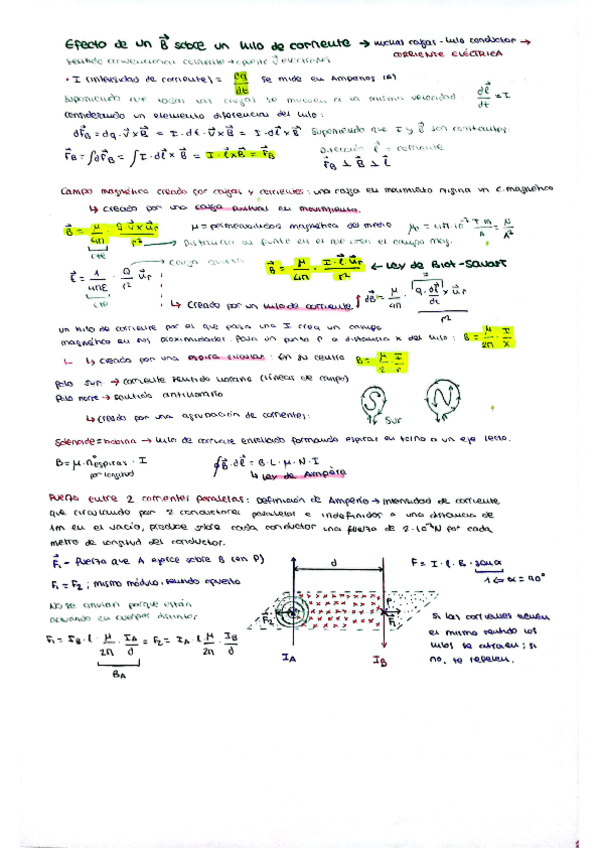 Efecto de un B⃗ sobre un hilo de corriente → muchas cargas - hilo conductor →
CORRIENTE ELÉCTRICA
sentido convencional corriente → opuesto
· I (intensidad de corriente) = dq/dt se mide en Amperios (A)
Suponiendo que todas las cargas se mueven a la misma velocidad. dl⃗/dt
considerando un elemento diferencial del hilo:
dF⃗B = dq · v⃗ x B⃗ = I · dt · v⃗ x B⃗ = I · dl⃗ x B⃗ Suponiendo que I y B⃗ son constantes:
F⃗B = ∫dF⃗B = ∫I · dl⃗ x B⃗ = I · l⃗ x B⃗ = F⃗B
Dirección l⃗ = corriente
F⃗B ⊥ B⃗ ⊥ l⃗
Campo magnético creado por cargas y corrientes: una carga en movimiento origina un c. magnético
↳ creado por una carga puntual en movimiento.
B⃗ = μ/4π · Q v⃗ x u⃗r / r² μ = permeabilidad magnética del medio μ₀ = 4π·10⁻⁷ T m/A = N/A²
cte Distancia al punto en el que crea el campo mag.
carga
= 1/4πε · Q/r² u⃗r B⃗ = μ/4π · I · l⃗ u⃗r / r² ← Ley de Biot-Savart
cte
↳ creado por un hilo de corriente ∫dB⃗ = μ/4π · Q · dl⃗/dt x u⃗r / r²
un hilo de corriente por el que pasa una I crea un campo
magnético en sus proximidades. Para un punto P a distancia x del hilo: B = μ/2π · I/x
↳ creado por una espira circular: En su centro B = μ/2 · I/r
Polo sur → corriente sentido horario (líneas de campo)
Polo norte → sentido antihorario
S N
Sur
↳ creado por una agrupación de corrientes:
Solenoide = bobina → hilo de corriente enrollado formando espiras en torno a un eje recto.
B = μ · nº espiras · I ∮B⃗ · dl⃗ = B · L = μ · N · I
por longitud ↳ Ley de Ampère
Fuerza entre 2 corrientes paralelas: Definición de Amperio → intensidad de corriente
que circulando por 2 conductores paralelos e indefinidos a una distancia de
1m en el vacío, produce sobre cada conductor una fuerza de 2·10⁻⁷N por cada
metro de longitud del conductor.
F⃗₁ - fuerza que A ejerce sobre B (en P) d F = I · l · B · senα
F₁ = F₂; mismo módulo, sentido opuesto 1 ↩ α = 90°
No se anulan porque están
actuando en cuerpos distintos
F₂ P F₁
Si las corrientes tienen
el mismo sentido los
hilos se atraen; si
no, se repelen.
F₁ = IB · l · μ/2π · IA/d = F₂ = IA · l μ/2π · IB/d
BA
IA IB